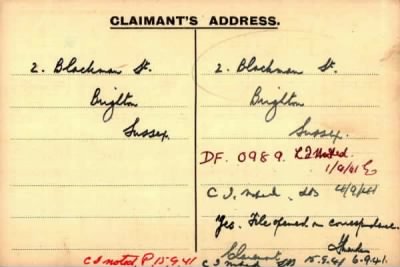 CLAIMANT'S ADDRESS.
2. Blackman St.
Brighton
Sussex.
C I noted, P 15.9.41
2. Blackman St.
Brighton
Sussex.
DF. 0989. L I Noted.
1/9/41
C I. noted, 4/9/41
Yes. File opened on correspondence.
6.9.41.
Claimant
C I noted 15.9.41